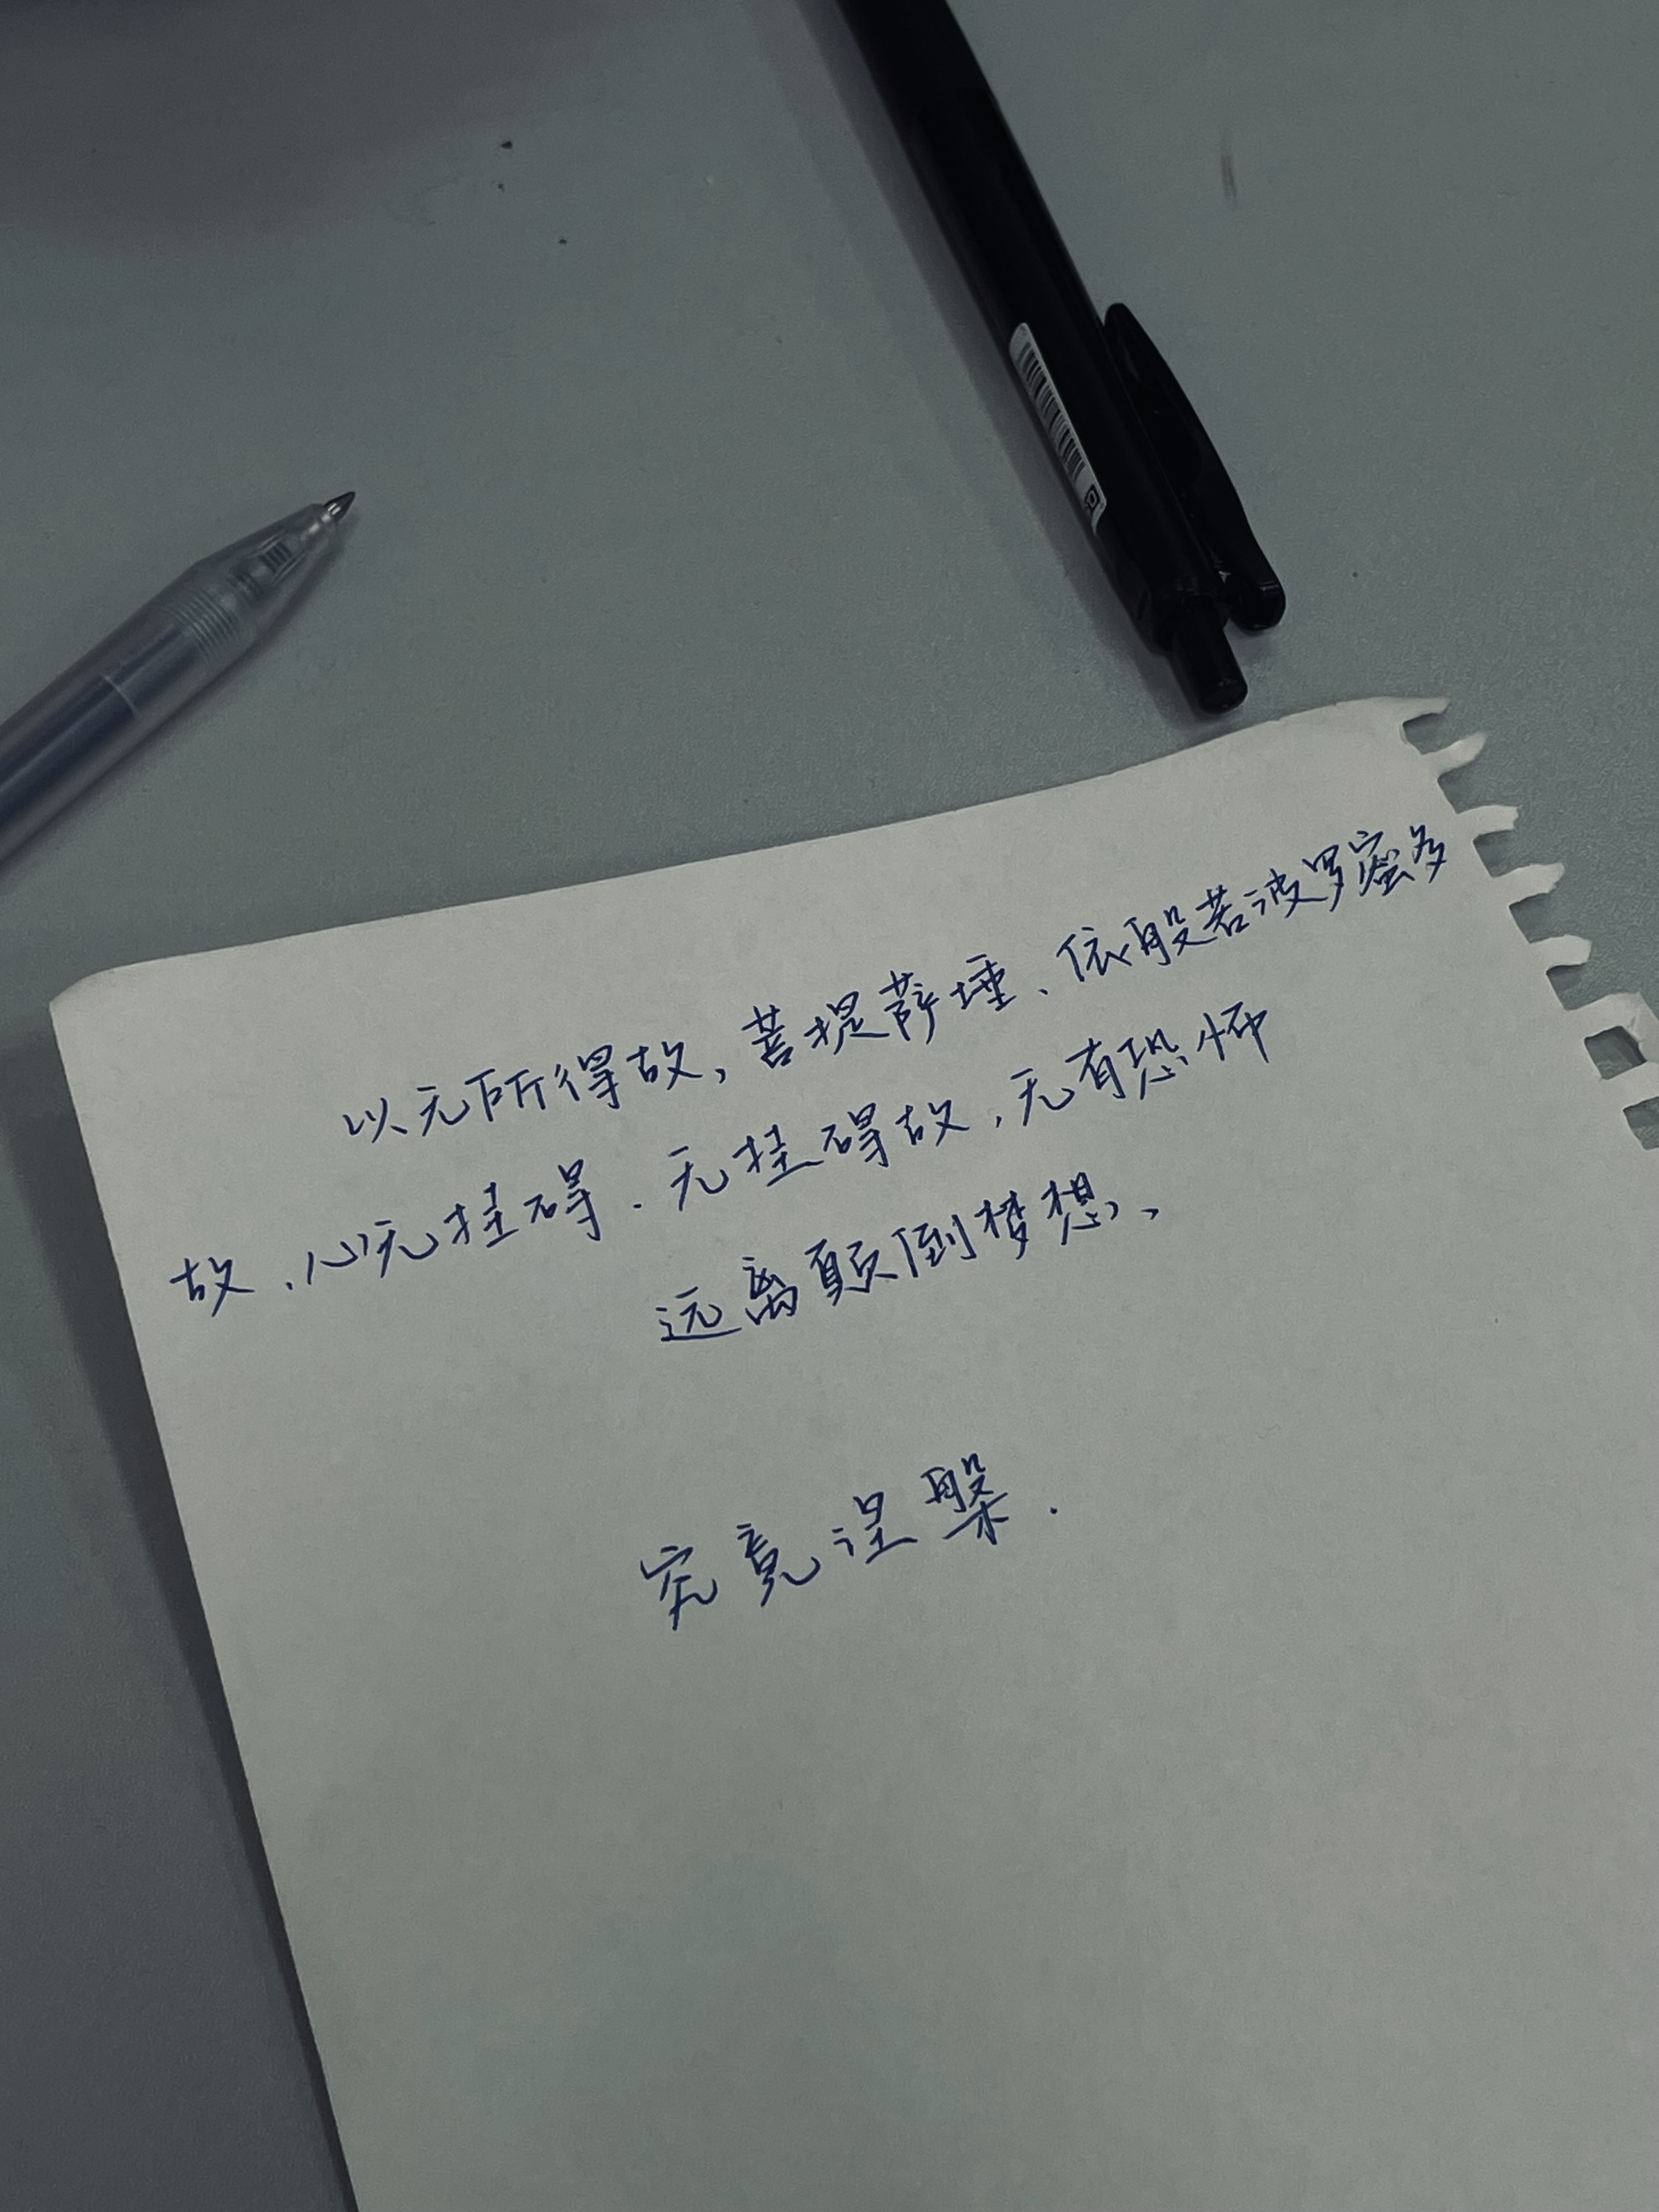 以无所得故,菩提萨埵、依般若波罗蜜多
故、心无挂碍.无挂碍故,无有恐怖
远离颠倒梦想、
究竟涅槃.